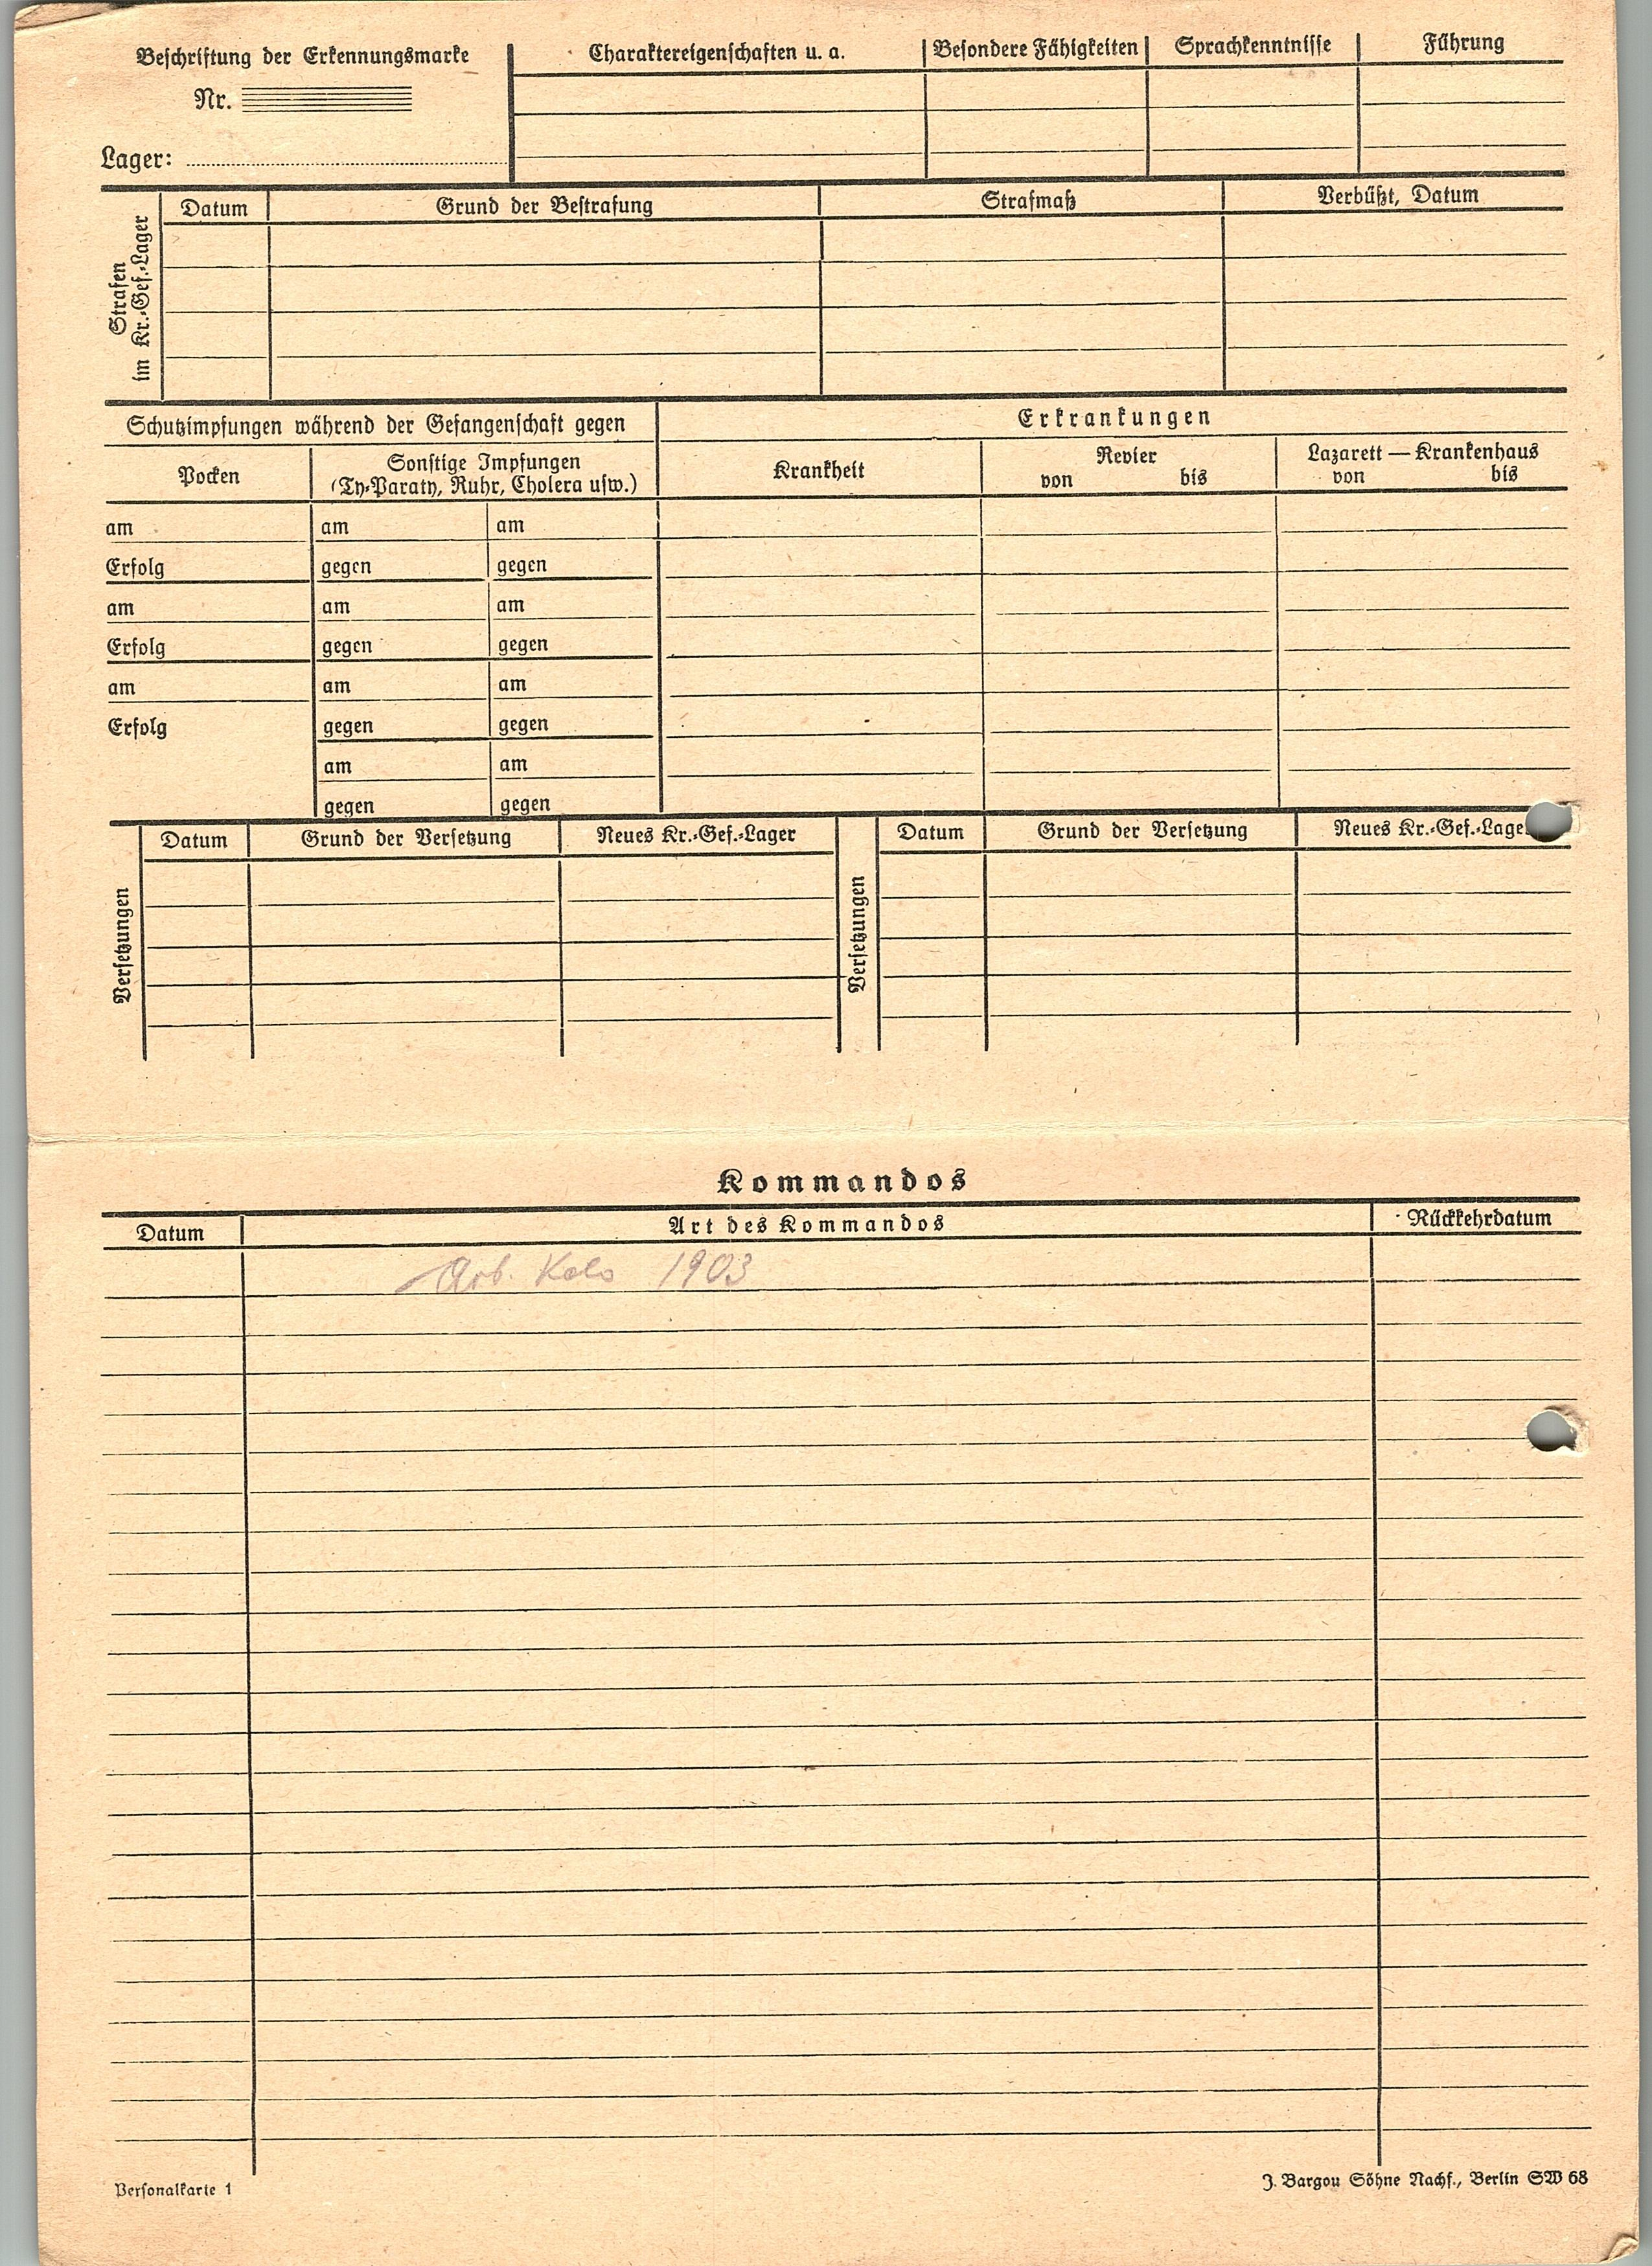 Beschriftung der Erkennungsmarke
Nr.
Lager:
Charaktereigenschaften u. a.
Besondere Fähigkeiten
Sprachkenntnisse
Führung
Strafen
im Kr.-Gef.-Lager
Datum
Grund der Bestrafung
Strafmaß
Verbüßt, Datum
Schutzimpfungen während der Gefangenschaft gegen
Erkrankungen
Pocken
Sonstige Impfungen
(Ty-Paraty, Ruhr, Cholera usw.)
Krankheit
Revier
von bis
Lazarett — Krankenhaus
von bis
am am am
Erfolg gegen gegen
am am am
Erfolg gegen gegen
am am am
Erfolg gegen gegen
am am
gegen gegen
Versetzungen
Datum Grund der Versetzung Neues Kr.-Gef.-Lager
Versetzungen
Datum Grund der Versetzung Neues Kr.-Gef.-Lage
Kommandos
Datum Art des Kommandos Rückkehrdatum
Arb. Kdo 1903
Personalkarte 1
J. Bargou Söhne Nachf., Berlin SW 68